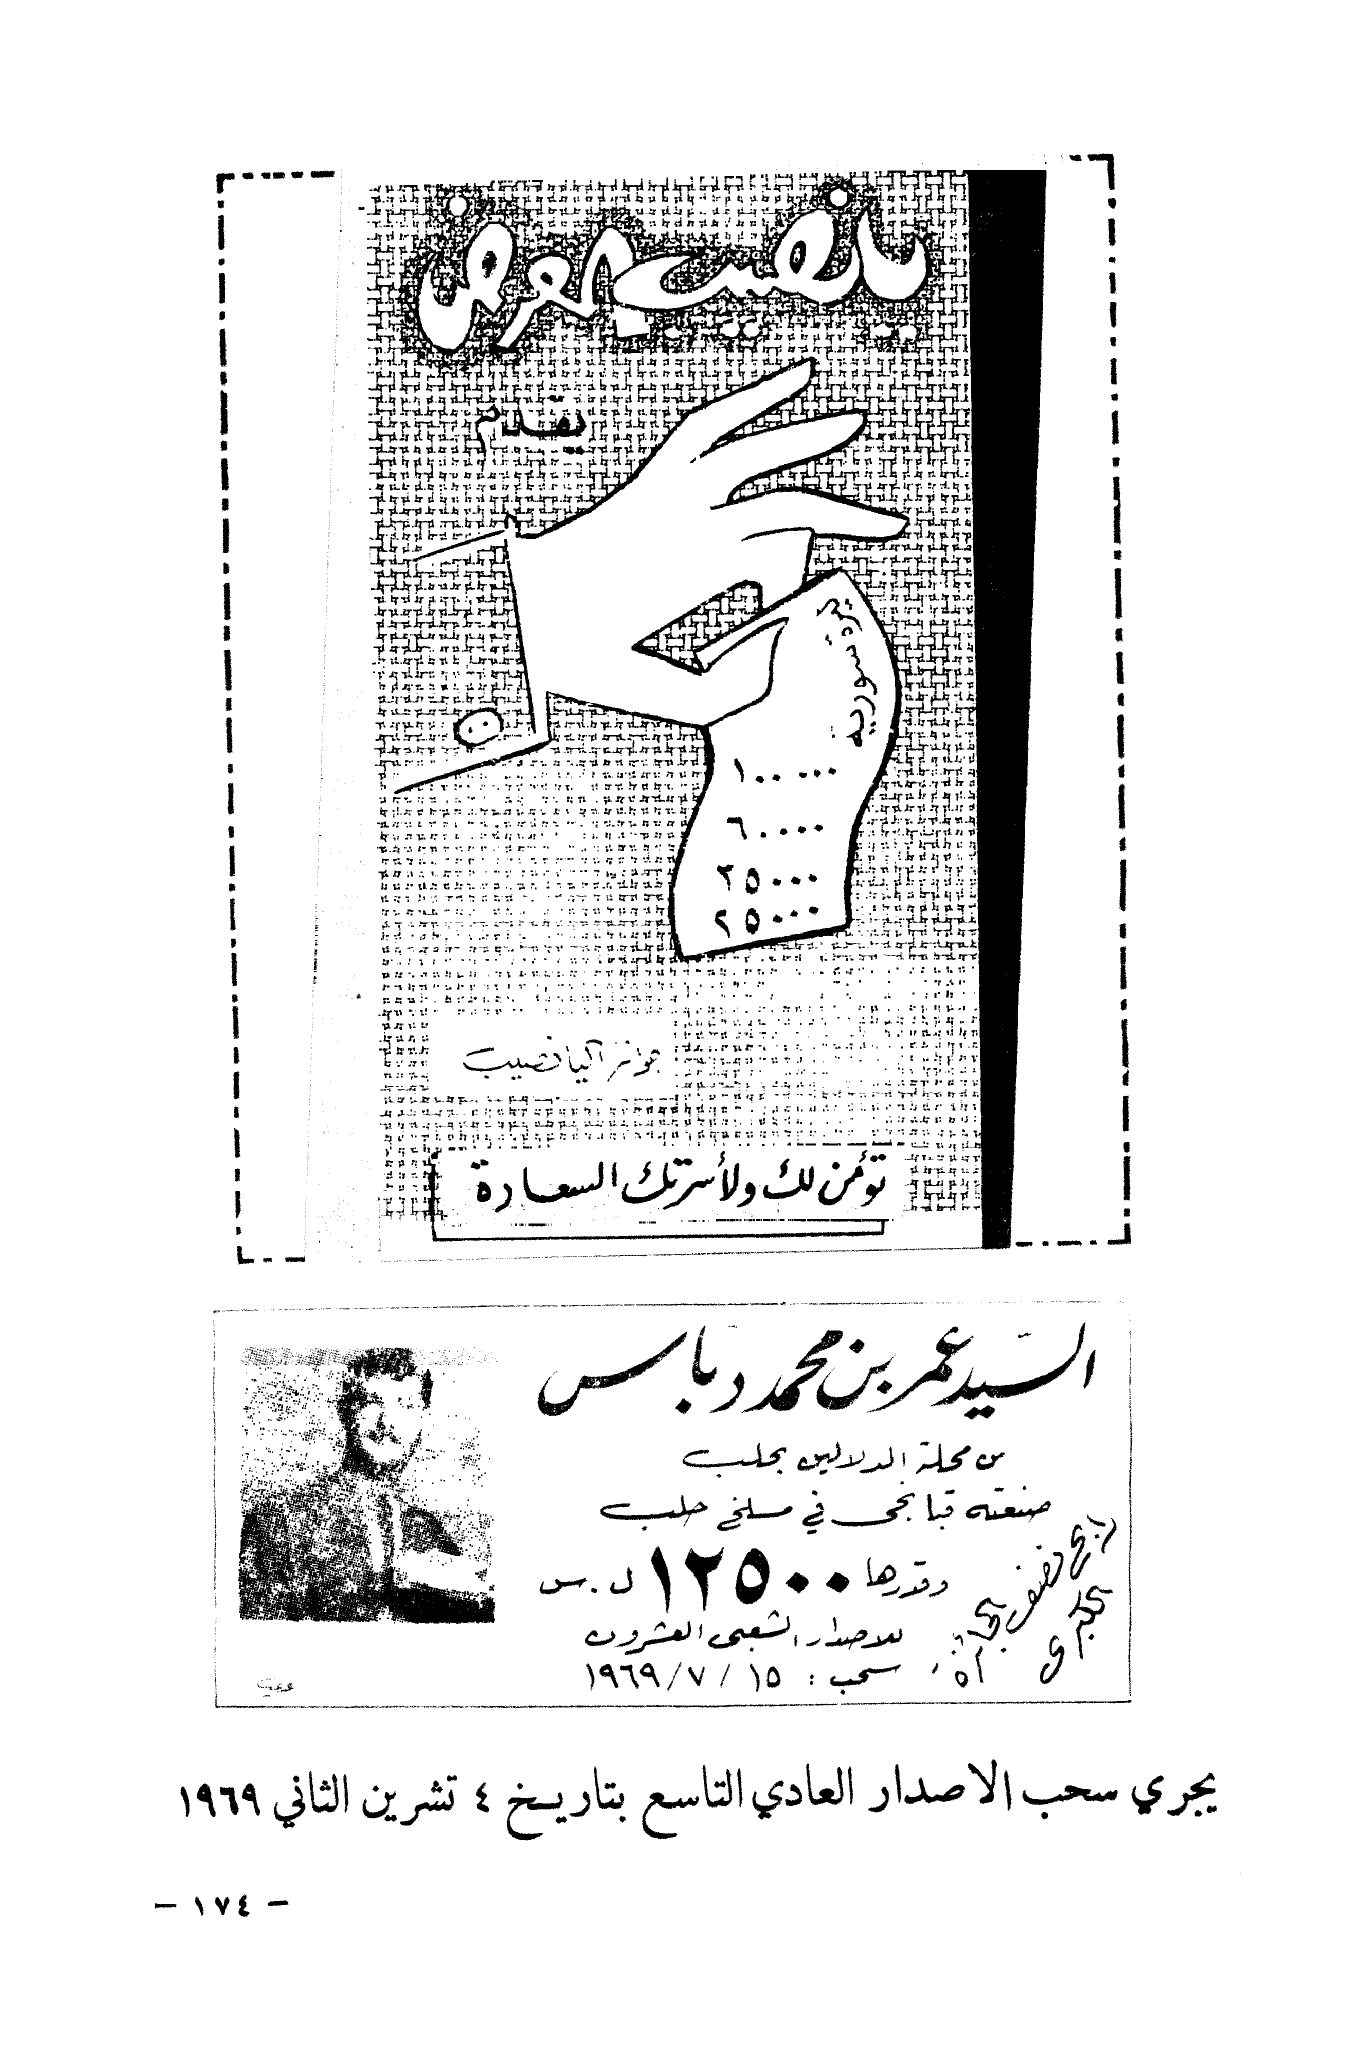 يانصيب المعرض
يقدم
ليرة سورية
١٠٠٠٠٠
٦٠٠٠٠
٢٥٠٠٠
٢٥٠٠٠
جوائز اليانصيب
تؤمن لك ولأسرتك السعادة
السيد عمر بن محمد دباس
من محلة الدلالين بحلب
صنعته قبانجي في مسلخ حلب
رابح نصف الجائزة الكبرى
وقدرها ١٢٥٠٠ ل.س
للاصدار الشعبي العشرون
سحب : ١٥ / ٧ / ١٩٦٩
يجري سحب الاصدار العادي التاسع بتاريخ ٤ تشرين الثاني ١٩٦٩
- ١٧٤ -